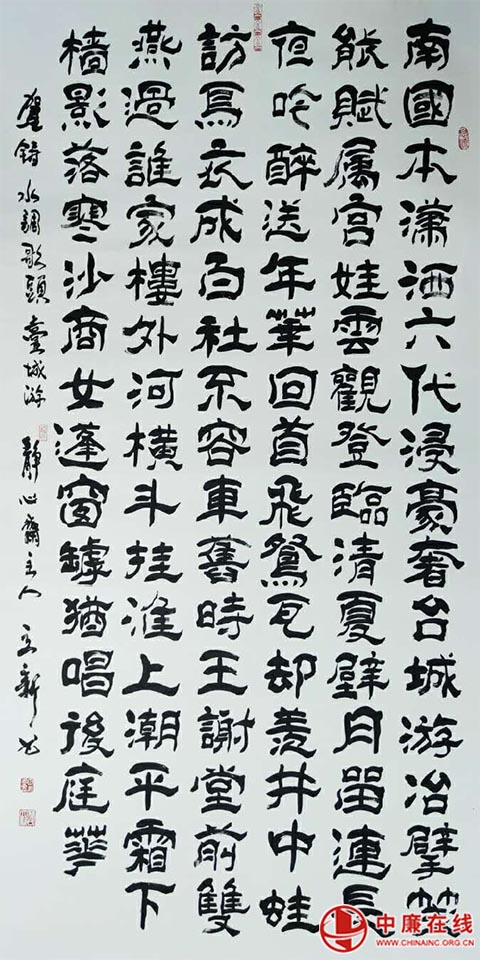 南國本瀟洒六代浸豪奢台城游冶擘笺
能賦属宫娃雲觀登臨清夏璧月留連長
夜吟醉送年華回首飛鴛瓦却羡井中蛙
訪烏衣成白社不容車舊時王謝堂前雙
燕過誰家樓外河横斗挂淮上潮平霜下
檣影落寒沙商女蓬窗罅猶唱後庭華
賀鑄 水調歌頭 臺城游 靜心齋主人
中廉在线
WWW.CHINAINC.ORG.CN